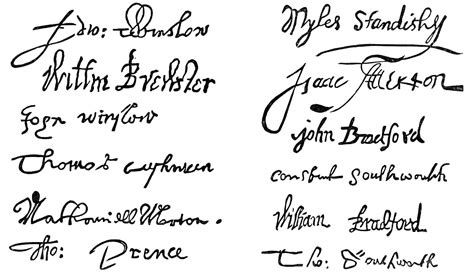 Edw: Winslow
Willm Brewster
John winslow
Thomas cushman
Nathaniell Morton.
Tho: Prence
Myles Standish
Isaac Allerton
john Bradford
constant Southworth
William Bradford
Tho: Southworth